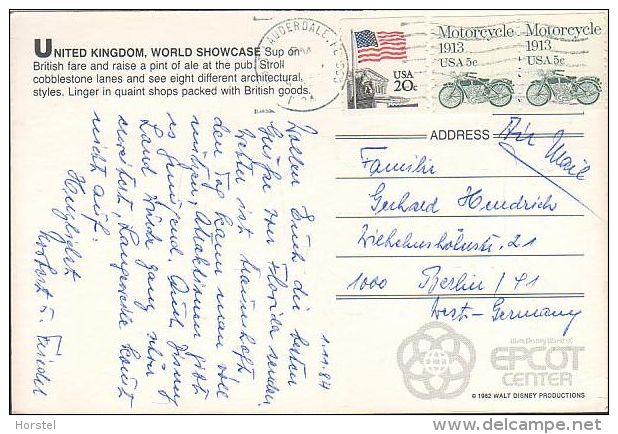 UNITED KINGDOM, WORLD SHOWCASE Sup on
British fare and raise a pint of ale at the pub. Stroll
cobblestone lanes and see eight different architectural
styles. Linger in quaint shops packed with British goods.
USA
20c
Motorcycle
1913
USA 5c
Motorcycle
1913
USA 5c
ADDRESS
Air Mail
Familie
Gerhard Hendrich
21
1000 Berlin / 41
West-Germany
1.11.84
Wollen Euch die besten
Grüße aus Florida senden.
Wetter ist traumhaft,
den Tag kann man
Attraktionen gibt
es genügend. Auch Disney
Land wurde ganz schön
erweitert, Langeweile kommt
nicht auf.
Herzlichst
Herbert u. Friedel
Walt Disney World's
EPCOT
CENTER
© 1982 WALT DISNEY PRODUCTIONS
Horstel
delcampe.net